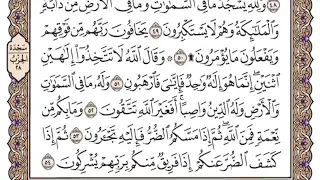 ٤٨ وَلِلَّهِ يَسْجُدُ مَا فِي ٱلسَّمَٰوَٰتِ وَمَا فِي ٱلْأَرْضِ مِن دَآبَّةٍ
وَٱلْمَلَٰٓئِكَةُ وَهُمْ لَا يَسْتَكْبِرُونَ ٤٩ يَخَافُونَ رَبَّهُم مِّن فَوْقِهِمْ
وَيَفْعَلُونَ مَا يُؤْمَرُونَ ۩ ٥٠ وَقَالَ ٱللَّهُ لَا تَتَّخِذُوٓا۟ إِلَٰهَيْنِ
ٱثْنَيْنِ إِنَّمَا هُوَ إِلَٰهٌ وَٰحِدٌ فَإِيَّٰىَ فَٱرْهَبُونِ ٥١ وَلَهُۥ مَا فِي ٱلسَّمَٰوَٰتِ
وَٱلْأَرْضِ وَلَهُ ٱلدِّينُ وَاصِبًا أَفَغَيْرَ ٱللَّهِ تَتَّقُونَ ٥٢ وَمَا بِكُم مِّن
نِّعْمَةٍ فَمِنَ ٱللَّهِ ثُمَّ إِذَا مَسَّكُمُ ٱلضُّرُّ فَإِلَيْهِ تَجْـَٔرُونَ ٥٣ ثُمَّ إِذَا
كَشَفَ ٱلضُّرَّ عَنكُمْ إِذَا فَرِيقٌ مِّنكُم بِرَبِّهِمْ يُشْرِكُونَ ٥٤
سَجْدَة
الحِزْب
٢٨